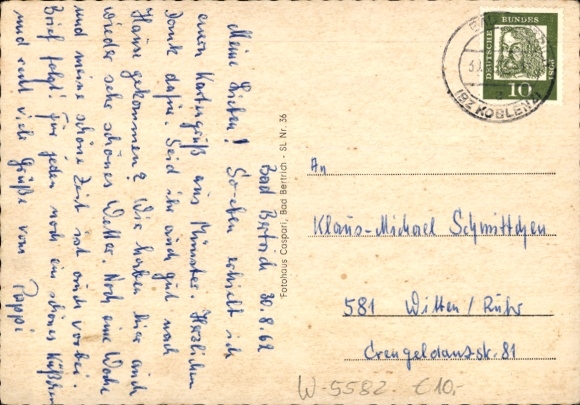 Bad Bertrich 30.8.62
Meine Lieben! Soeben erhielt ich
einen Kartengruß aus Münster. Herzlichen
Dank dafür. Seid ihr auch gut nach
Hause gekommen? Wir haben hier auch
wieder sehr schönes Wetter. Noch eine Woche
und meine schöne Zeit ist auch vorbei.
Brief folgt! Für jeden noch ein schönes Küßchen
und recht viele Grüße vom Pappi
Fotohaus Caspari, Bad Bertrich - SL Nr. 36
DEUTSCHE BUNDES
10
(BZ KOBLENZ)
An
Klaus-Michael Schmittchen
581 Witten/Ruhr
Crengeldanzstr. 81
W-5582- €10,-